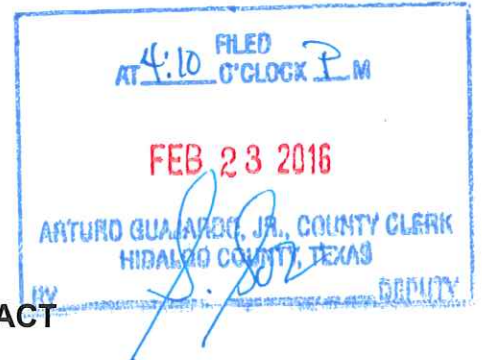 FILED
AT 4:10 O'CLOCK P M
FEB 23 2016
ARTURO GUAJARDO, JR., COUNTY CLERK
HIDALGO COUNTY, TEXAS
BY DEPUTY
ACT